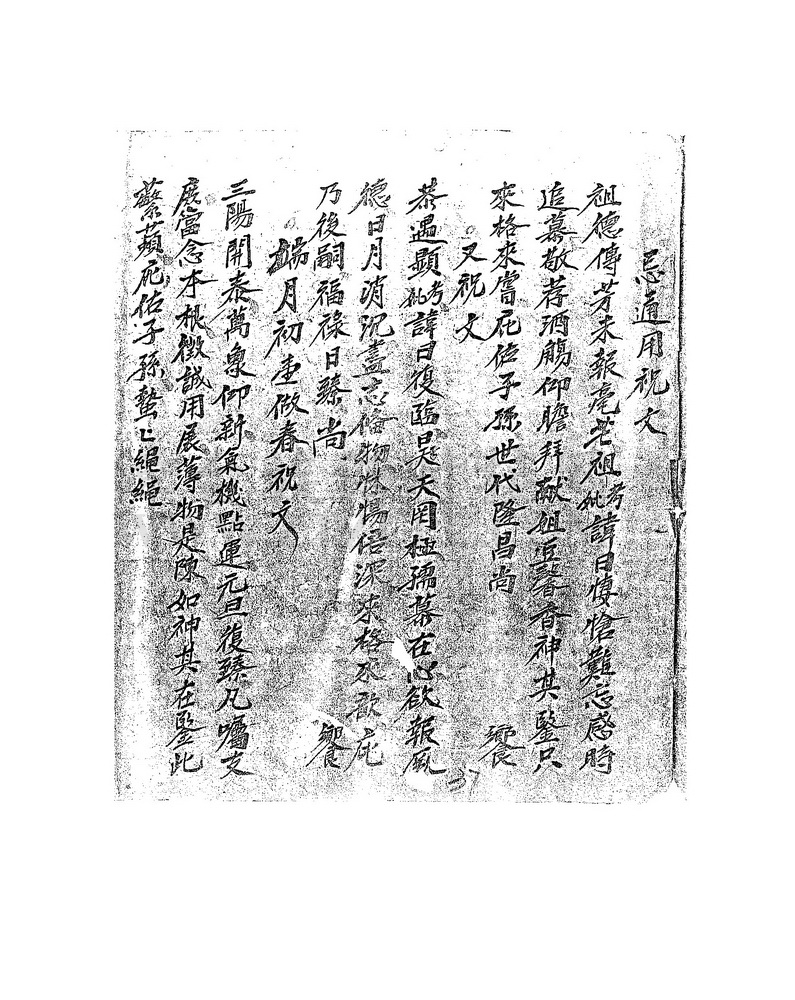 忌通用祝文
祖德傳芳未報毫芒祖考妣諱日悽愴難忘感時
追慕敬荐酒觴仰瞻拜献俎豆馨香神其鑒只
來格來嘗庇佑子孫世代隆昌尚 饗
又祝文
恭遇顯考妣諱日復臨昊天罔極孺慕在心欲報厥
德日月消沉盡志俻物怵惕倍深來格來歆庇
乃後嗣福祿日臻尚 饗
端月初壹做春祝文
三陽開泰萬象仰新氣機點運元旦復臻凡囑支
庶當念本根徵誠用展薄物是陳如神其在鑒此
蘩蘋庇佑子孫蟄〻繩繩